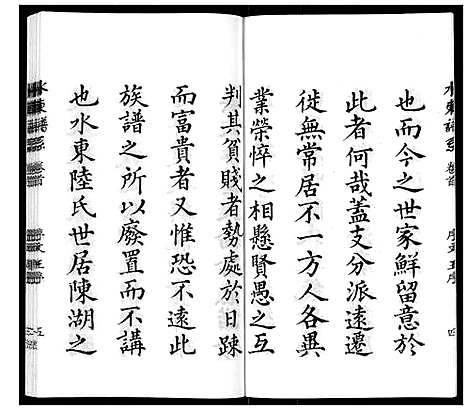 也而今之世家鮮留意於
此者何哉蓋支分派遠遷
徙無常居不一方人各異
業榮悴之相懸賢愚之互
判其貧賤者勢處於日踈
而富貴者又惟恐不遠此
族譜之所以廢置而不講
也水東陸氏世居陳湖之